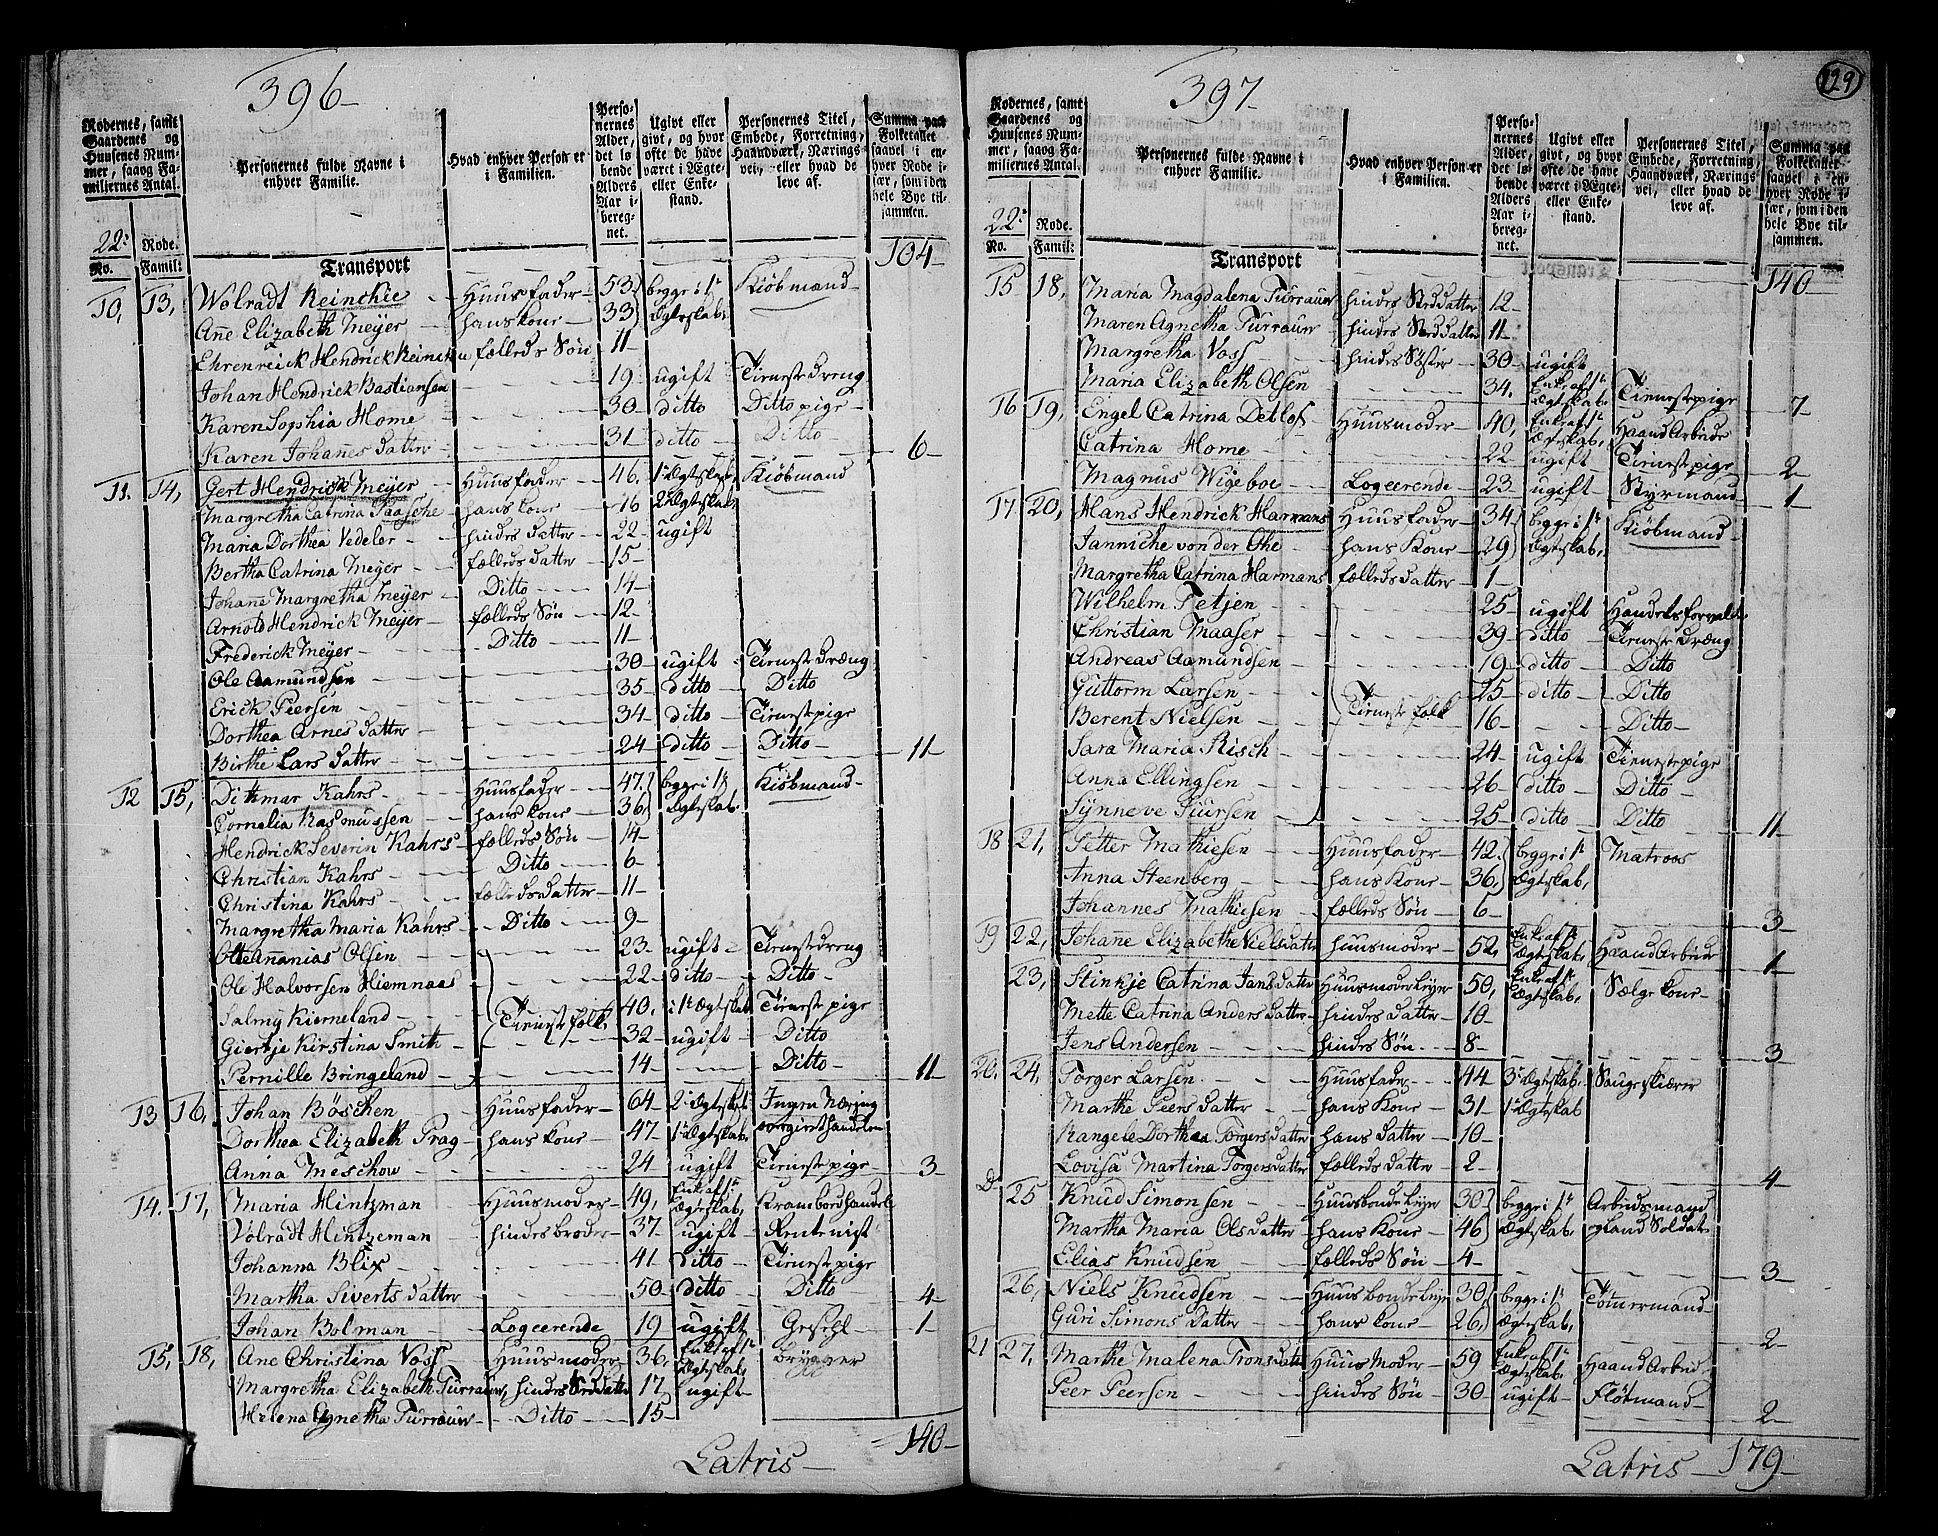 396
Rodernes, samt Gaardenes og Huusenes Nummer, saavog Familiernes Antal.
Personernes fulde Navne i enhver Familie.
Hvad enhver Person er i Familien.
Personernes Alder, det løbende Alders Aar iberegnet.
Ugivt eller givt, og hvor ofte de have været i Ægte- eller Enkestand.
Personernes Titel, Embede, Forretning, Haandværk, Næringsvei, eller hvad de leve af.
Summa paa Folketallet saavel i enhver Rode især, som i den hele Bye tilsammen.
22: Rode.
No. Famil:
Transport 104
10, 13, Wolradt Reinchie Huusfader 53 begge i 1te Kiöbmand
Ane Elizabeth Meyer hans kone 33 Ægteskab.
Ehrenreick Hendrick Reincke fælleds Sön 11
Johan Hendrick Bastiansen 19 ugift Tienestedreng
Karen Sophia Home 30 ditto Ditto pige
Karen Johannes datter 31 ditto Ditto 6
11. 14, Gert Hendrick Meyer Huusfader 46. 1 Ægteskab, Kiöbmand
Margretha Catrina Paasche hans kone 46 2 Ægteskab,
Maria Dorthea Vedeler hindes datter 22 ugift
Bertha Catrina Meyer fælleds datter 15
Johane Margretha Meyer Ditto 14
Arnold Hendrick Meyer fælleds Sön 12
Frederick Meyer Ditto 11
Ole Aamundsen 30 ugift Tienestedræng
Erick Peersen 35 ditto Ditto
Dorthea Arnes datter 34 ditto Tienestepige
Birthe Lars datter 24 ditto Ditto 11
12 15, Ditmar Kahrs Huusfader 47. begge i 1te Kiöbmand
Cornelia Rasmussen hans kone 36. Ægteskab.
Hendrick Severin Kahrs fælleds Sön 14
Christian Kahrs Ditto 6
Christina Kahrs fælleds datter 11
Margretha Maria Kahrs Ditto 9
Otte Ananias Olsen 23 ugift Tienestedreng
Ole Halvorsen Hiemnaas 22 ditto Ditto
Salmy Kierneland Tienestfolk 40. i 1te Ægteskab Tienestpige
Giertje Kirstina Smith 32 ugift Ditto
Pernille Bringeland 14 Ditto 11
13 16, Johan Böschen Huusfader 64 2 Ægteskab Ingen Næring
Dorthea Elizabeth Prag hans kone 47 1te Ægteskab,
Anna Meschow 24 ugift Tienestepige 3
14. 17, Maria Hintzman Huusmoder 49, Enke af 1te Ægteskab, Kramboedhandel
Volradt Hintzeman hindes broder 37 ugift Rentenist
Johanna Blix 41 Ditto Tienestpige
Martha Siverts datter 50 ditto Ditto 4
Johan Bolman Logeerende 19 ugift Gesehl 1
15, 18, Ane Christina Voss Huusmoder 36. Enke af 1te Ægteskab, brygger
Margretha Elizabeth Turrauw, hindes Sted datter 17 ugift
Helena Agnetha Turrauw Ditto 15
Latris 140
397
129
Rodernes, samt Gaardenes og Huusenes Nummer, saavog Familiernes Antal.
Personernes fulde Navne i enhver Familie.
Hvad enhver Person er i Familien.
Personernes Alder, det løbende Alders Aar iberegnet.
Ugivt eller givt, og hvor ofte de have været i Ægte- eller Enkestand.
Personernes Titel, Embede, Forretning, Haandværk, Næringsvei, eller hvad de leve af.
Summa paa Folketallet saavel i enhver Rode især, som i den hele Bye tilsammen.
22: Rode.
No. Famil:
Transport 140
15 18, Maria Magdalena Turrauw hindes Steddatter 12
Maren Agnetha Turrauw hindes Steddatter 11
Margretha Voss hindes Söster 30 ugift
Maria Elizabeth Olsen 34. Enke af 1te Ægteskab, Tienestepige 7
16 19, Engel Catrina Detlof Huusmoder 40, Enke af 1te Ægteskab, Haand Arbeide
Catrina Home 22 ugift Tienestpige 2
Magnus Wigeboe Logeerende 23 ugift Styrmand 1
17 20, Hans Hendrick Harmans Huusfader 34 begge i 1te Kiöbmand
Janniche von der Ohe hans Kone 29 Ægteskab,
Margretha Catrina Harmans fælleds datter 1
Wilhelm Tetjen 25 ugift Handels forvalter
Christian Maaser 39 ditto Tieneste dræng
Andreas Aamundsen 19 ditto Ditto
Guttorm Larsen Tienestfolk 25 ditto Ditto
Berent Nielsen 16 Ditto
Sara Maria Risch 24 ugift Tienestepige
Anna Ellingsen 26 ditto Ditto
Synneve Siursen 25 ditto Ditto 11
18 21, Petter Mathiesen Huusfader 42. begge i 1te Matroos
Anna Steenberg hans Kone 36, Ægteskab,
Johannes Mathiesen fælleds Sön 6 3
19 22, Johane Elizabethe Nielsdatter huusmoder 52, Enke af 1te Ægteskab, Haand Arbeide 1
23, Stinkje Catrina Jansdatter Huusmoder Leyer 50, Enke af 1te Ægteskab, Sælge kone
Mette Catrina Anders datter hindes datter 10
Jens Andersen hindes Sön 8 3
20. 24, Torger Larsen Huusfader 44 3te Ægteskab, Saugeskiærer
Marthe Peers datter hans Kone 31 1te Ægteskab
Rangele Dorthea Torgersdatter hans datter 10
Lovisa Martina Torgersdatter fælleds datter 2 4
Do 25 Knud Simonsen Huusbonde Leyer 30 begge i 1te Arbeidsmand
Martha Maria Olsdatter hans Kone 46 Ægteskab, og Land Soldat
Elias Knudsen fælleds Sön 4 3
26, Niels Knudsen Huusbonde Leyer 30 begge i 1te Tömermand
Guri Simons datter hans kone 26, Ægteskab, 2
21 27, Marthe Malena Tronsdatter Huus Moder 59 Enke af 1te Ægteskab, Haand Arbeid
Peer Peersen hindes Sön 30 ugift Flötmand 2
Latris 179